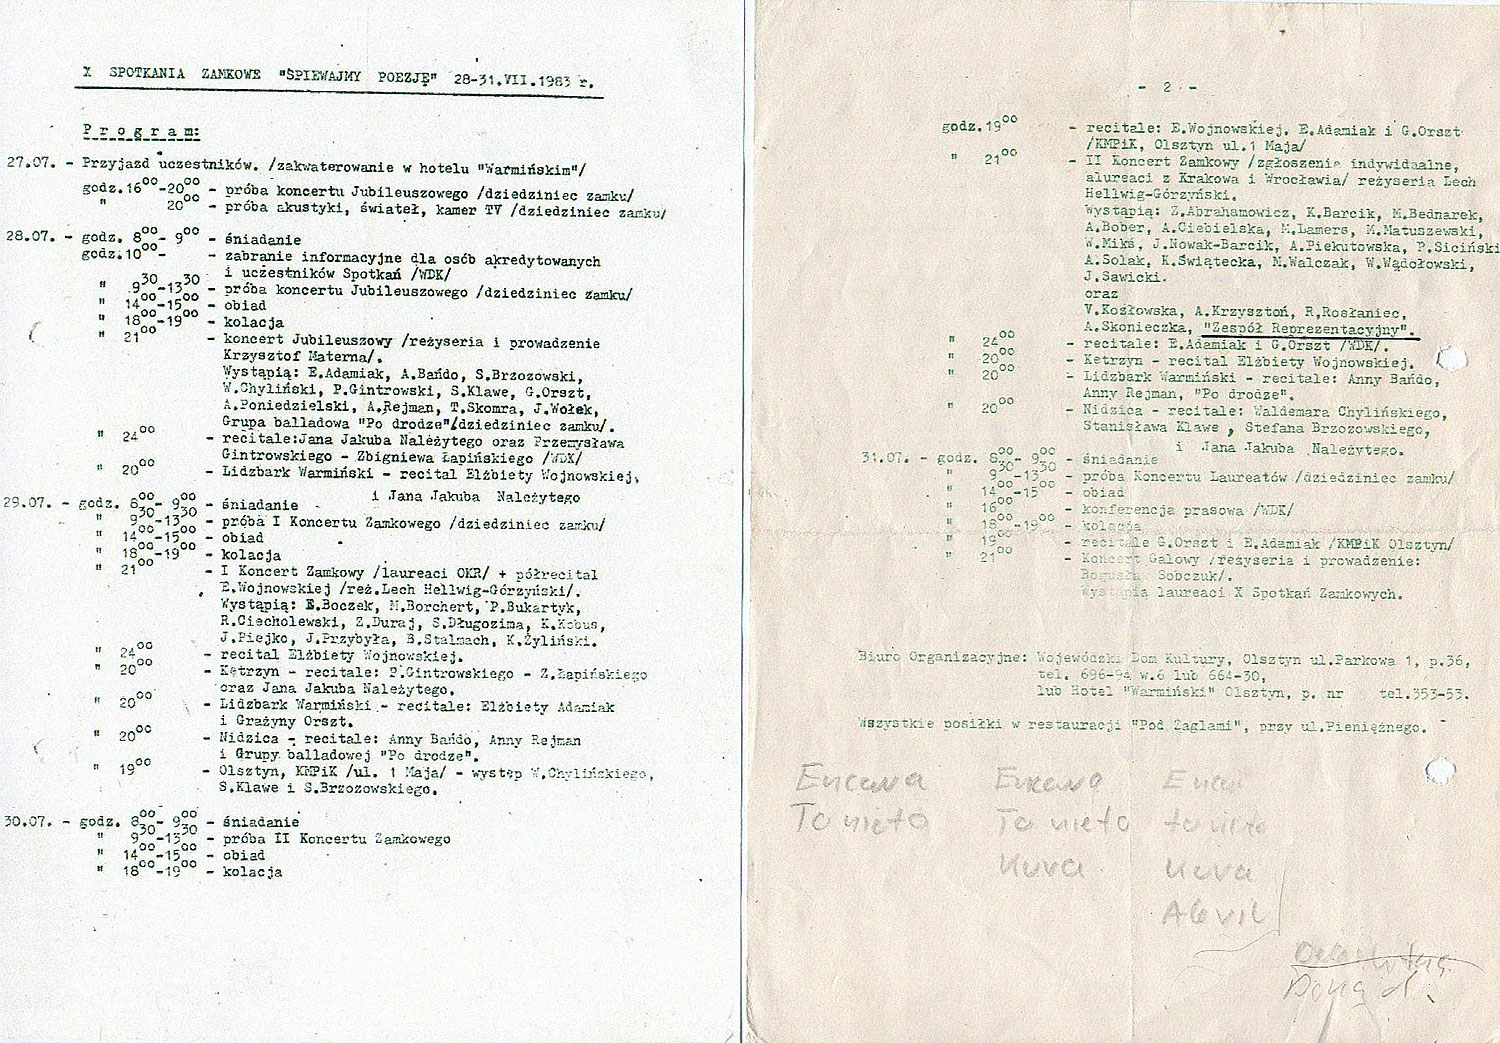 X SPOTKANIA ZAMKOWE "ŚPIEWAJMY POEZJĘ" 28-31.VII.1983 r.
Program:
27.07. - Przyjazd uczestników. /zakwaterowanie w hotelu "Warmińskim"/
godz.16⁰⁰-20⁰⁰ - próba koncertu Jubileuszowego /dziedziniec zamku/
" 20⁰⁰ - próba akustyki, świateł, kamer TV /dziedziniec zamku/
28.07. - godz. 8⁰⁰- 9⁰⁰ - śniadanie
godz.10⁰⁰- - zabranie informacyjne dla osób akredytowanych
i uczestników Spotkań /WDK/
" 9³⁰-13³⁰ - próba koncertu Jubileuszowego /dziedziniec zamku/
" 14⁰⁰-15⁰⁰ - obiad
" 18⁰⁰-19⁰⁰ - kolacja
" 21⁰⁰ - koncert Jubileuszowy /reżyseria i prowadzenie
Krzysztof Materna/.
Wystąpią: E.Adamiak, A.Bańdo, S.Brzozowski,
W.Chyliński, P.Gintrowski, S.Klawe, G.Orszt,
A.Poniedzielski, A.Rejman, T.Skomra, J.Wołek,
Grupa balladowa "Po drodze"/dziedziniec zamku/.
" 24⁰⁰ - recitale:Jana Jakuba Należytego oraz Przemysława
Gintrowskiego - Zbigniewa Łapińskiego /WDK/
" 20⁰⁰ - Lidzbark Warmiński - recital Elżbiety Wojnowskiej,
i Jana Jakuba Należytego
29.07. - godz. 8⁰⁰- 9⁰⁰ - śniadanie
" 9³⁰-13³⁰ - próba I Koncertu Zamkowego /dziedziniec zamku/
" 14⁰⁰-15⁰⁰ - obiad
" 18⁰⁰-19⁰⁰ - kolacja
" 21⁰⁰ - I Koncert Zamkowy /laureaci OKR/ + półrecital
E.Wojnowskiej /reż.Lech Hellwig-Górzyński/.
Wystąpią: E.Boczek, M.Borchert, P.Bukartyk,
R.Ciecholewski, Z.Duraj, S.Długozima, K.Kobus,
J.Piejko, J.Przybyła, B.Stalmach, K.Żyliński.
" 24⁰⁰ - recital Elżbiety Wojnowskiej.
" 20⁰⁰ - Kętrzyn - recitale: P.Gintrowskiego - Z.Łapińskiego
oraz Jana Jakuba Należytego.
" 20⁰⁰ - Lidzbark Warmiński - recitale: Elżbiety Adamiak
i Grażyny Orszt.
" 20⁰⁰ - Nidzica - recitale: Anny Bańdo, Anny Rejman
i Grupy balladowej "Po drodze".
" 19⁰⁰ - Olsztyn, KMPiK /ul. 1 Maja/ - występ W.Chylińskiego,
S.Klawe i S.Brzozowskiego.
30.07. - godz. 8⁰⁰- 9⁰⁰ - śniadanie
" 9³⁰-13³⁰ - próba II Koncertu Zamkowego
" 14⁰⁰-15⁰⁰ - obiad
" 18⁰⁰-19⁰⁰ - kolacja
- 2 -
godz.19⁰⁰ - recitale: E.Wojnowskiej, E.Adamiak i G.Orszt
/KMPiK, Olsztyn ul.1 Maja/
" 21⁰⁰ - II Koncert Zamkowy /zgłoszenia indywidualne,
alureaci z Krakowa i Wrocławia/ reżyseria Lech
Hellwig-Górzyński.
Wystąpią: Z.Abrahamowicz, K.Barcik, M.Bednarek,
A.Bober, A.Ciebielska, M.Lamers, M.Matuszewski,
W.Mikś, J.Nowak-Barcik, A.Piekutowska, P.Siciński
A.Solak, K.Świątecka, M.Walczak, W.Wądołowski,
J.Sawicki.
oraz
V.Kozłowska, A.Krzysztoń, R,Rosłaniec,
A.Skonieczka, "Zespół Reprezentacyjny".
" 24⁰⁰ - recitale: E.Adamiak i G.Orszt /WDK/.
" 20⁰⁰ - Kętrzyn - recital Elżbiety Wojnowskiej.
" 20⁰⁰ - Lidzbark Warmiński - recitale: Anny Bańdo,
Anny Rejman, "Po drodze".
" 20⁰⁰ - Nidzica - recitale: Waldemara Chylińskiego,
Stanisława Klawe , Stefana Brzozowskiego,
i Jana Jakuba Należytego.
31.07. - godz. 8⁰⁰- 9⁰⁰ - śniadanie
" 9³⁰-13³⁰ - próba Koncertu Laureatów /dziedziniec zamku/
" 14⁰⁰-15⁰⁰ - obiad
" 16⁰⁰ - konferencja prasowa /WDK/
" 18⁰⁰-19⁰⁰ - kolacja
" 19⁰⁰ - recitale G.Orszt i E.Adamiak /KMPiK Olsztyn/
" 21⁰⁰ - Koncert Galowy /reżyseria i prowadzenie:
Bogusła Sobczuk/.
Wystąpią laureaci X Spotkań Zamkowych.
Biuro Organizacyjne: Wojewódzki Dom Kultury, Olsztyn ul.Parkowa 1, p.36,
tel. 696-94 w.6 lub 664-30,
lub Hotel "Warmiński" Olsztyn, p. nr tel.353-53.
Wszystkie posiłki w restauracji "Pod Żaglami", przy ul.Pieniężnego.
To nieto To nieto to nieto
Kura Kura